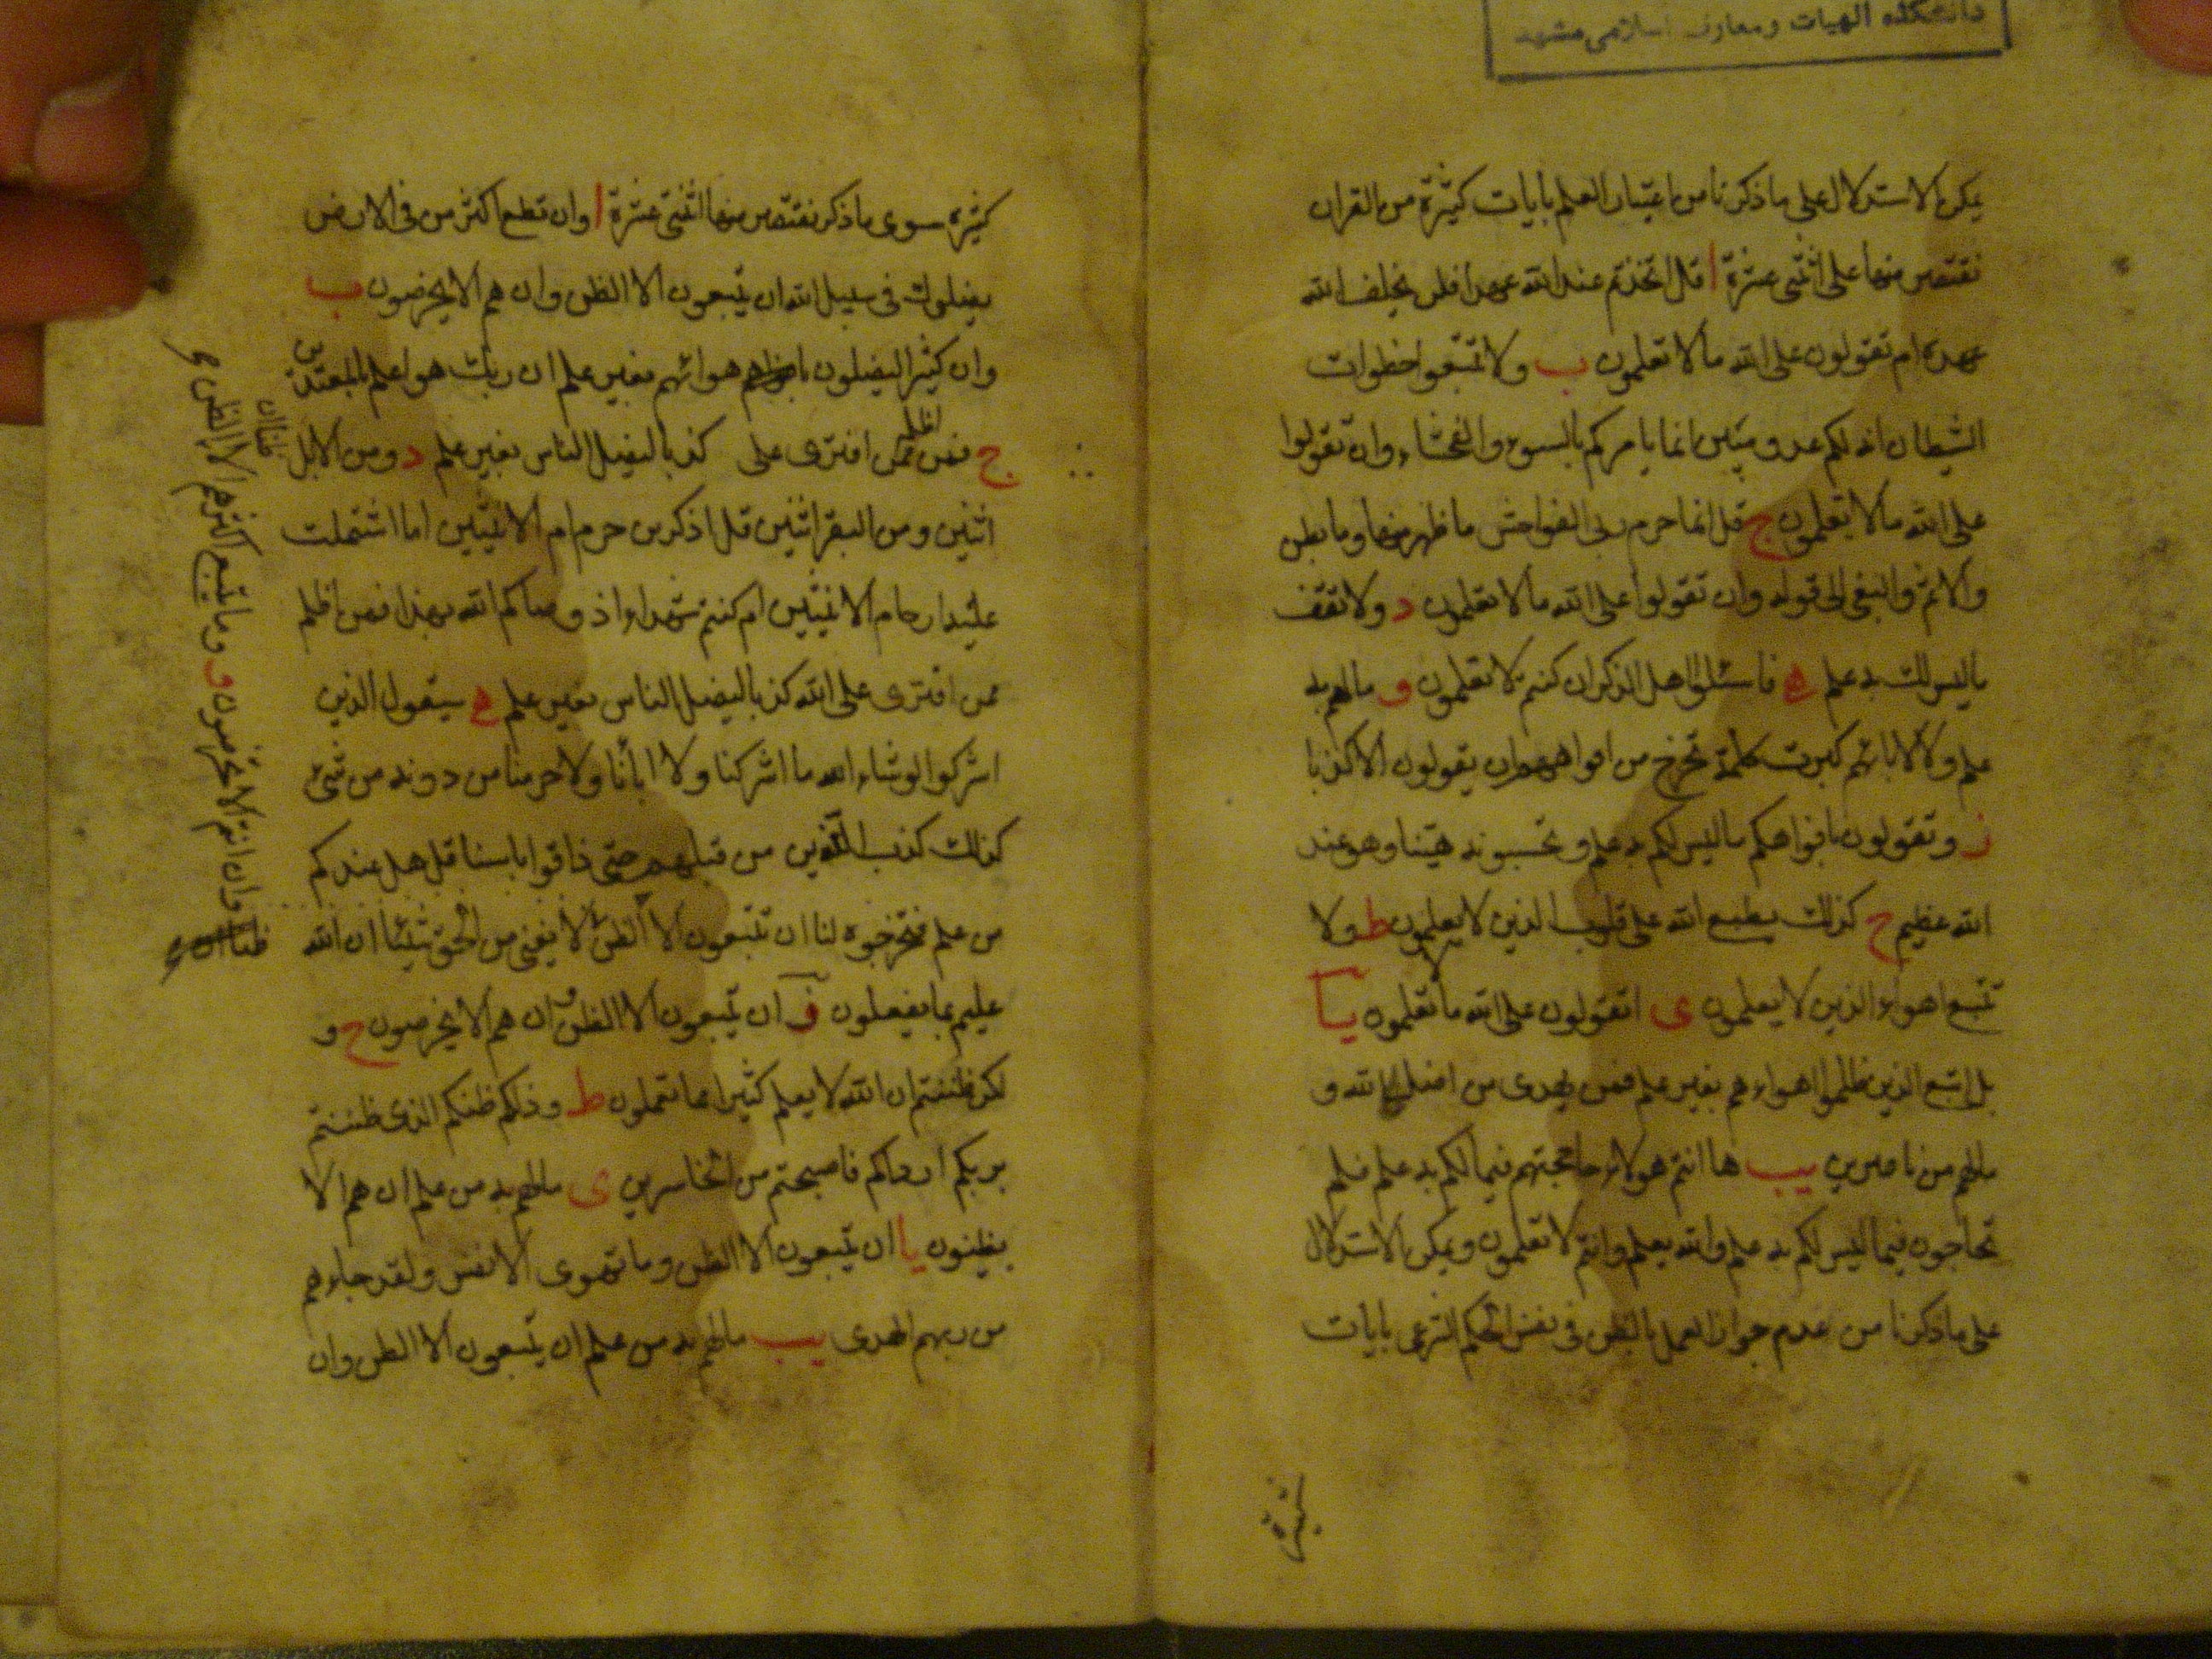 دانشکده الهیات ومعارف اسلامی مشهد
يمكن الاستدلال على ما ذكرنا من اعتبار العلم بايات كثيرة من القران
نقتصر منها على اثنتى عشرة ا قل اتخذتم عند الله عهدا فلن يخلف الله
عهده ام تقولون على الله ما لا تعلمون ب ولا تتبعوا خطوات
الشيطان انه لكم عدو مبين انما يامركم بالسوء والفحشاء وان تقولوا
على الله ما لا تعلمون ج قل انما حرم ربى الفواحش ما ظهر منها وما بطن
والاثم والبغى الى قوله وان تقولوا على الله ما لا تعلمون د ولا تقف
ما ليس لك به علم ه فاسئلوا اهل الذكر ان كنتم لا تعلمون و ما لهم به
علم ولا لابائهم كبرت كلمة تخرج من افواههم ان يقولون الا كذبا
ز وتقولون بافواهكم ما ليس لكم به علم وتحسبونه هينا وهو عند
الله عظيم ح كذلك يطبع الله على قلوب الذين لا يعلمون ط ولا
تتبع اهواء الذين لا يعلمون ى اتقولون على الله ما لا تعلمون يا
بل اتبع الذين ظلموا اهواءهم بغير علم فمن يهدى من اضل الله و
ما لهم من ناصرين يب ها انتم هولاء حاججتم فيما لكم به علم فلم
تحاجون فيما ليس لكم به علم والله يعلم وانتم لا تعلمون ويمكن الاستدلال
على ما ذكرنا من عدم جواز العمل بالظن فى نفس الحكم الشرعى بايات
كثيرة
كثيره سوى ما ذكر نقتصر منها اثنتى عشرة ا وان تطع اكثر من فى الارض
يضلوك فى سبيل الله ان يتبعون الا الظن وان هم الا يخرصون ب
وان كثيرا ليضلون باهوائهم بغير علم ان ربك هو اعلم بالمعتدين
ج فمن اظلم ممن افترى على كذبا ليضل الناس بغير علم د ومن الابل
اثنين ومن البقر اثنين قل اذكرين حرم ام الانثيين اما اشتملت
عليه ارحام الانثيين ام كنتم شهداء اذ وصاكم الله بهذا فمن اظلم
ممن افترى على الله كذبا ليضل الناس بغير علم ه سيقول الذين
اشركوا لو شاء الله ما اشركنا ولا اباؤنا ولا حرمنا من دونه من شئ
كذلك كذب الذين من قبلهم حتى ذاقوا باسنا قل هل عندكم
من علم فتخرجوه لنا ان تتبعون الا الظن لا يغنى من الحق شيئا ان الله
عليم بما يفعلون ز ان يتبعون الا الظن وان هم الا يخرصون ح و
لكن ظننتم ان الله لا يعلم كثيرا مما تعملون ط وذلكم ظنكم الذى ظننتم
بربكم ارداكم فاصبحتم من الخاسرين ى ما لهم به من علم ان هم الا
يظنون يا ان يتبعون الا الظن وما تهوى الانفس ولقد جاءهم
من ربهم الهدى يب ما لهم به من علم ان يتبعون الا الظن وان
وان انتم الا تخرصون و وما يتبع اكثرهم الا الظن